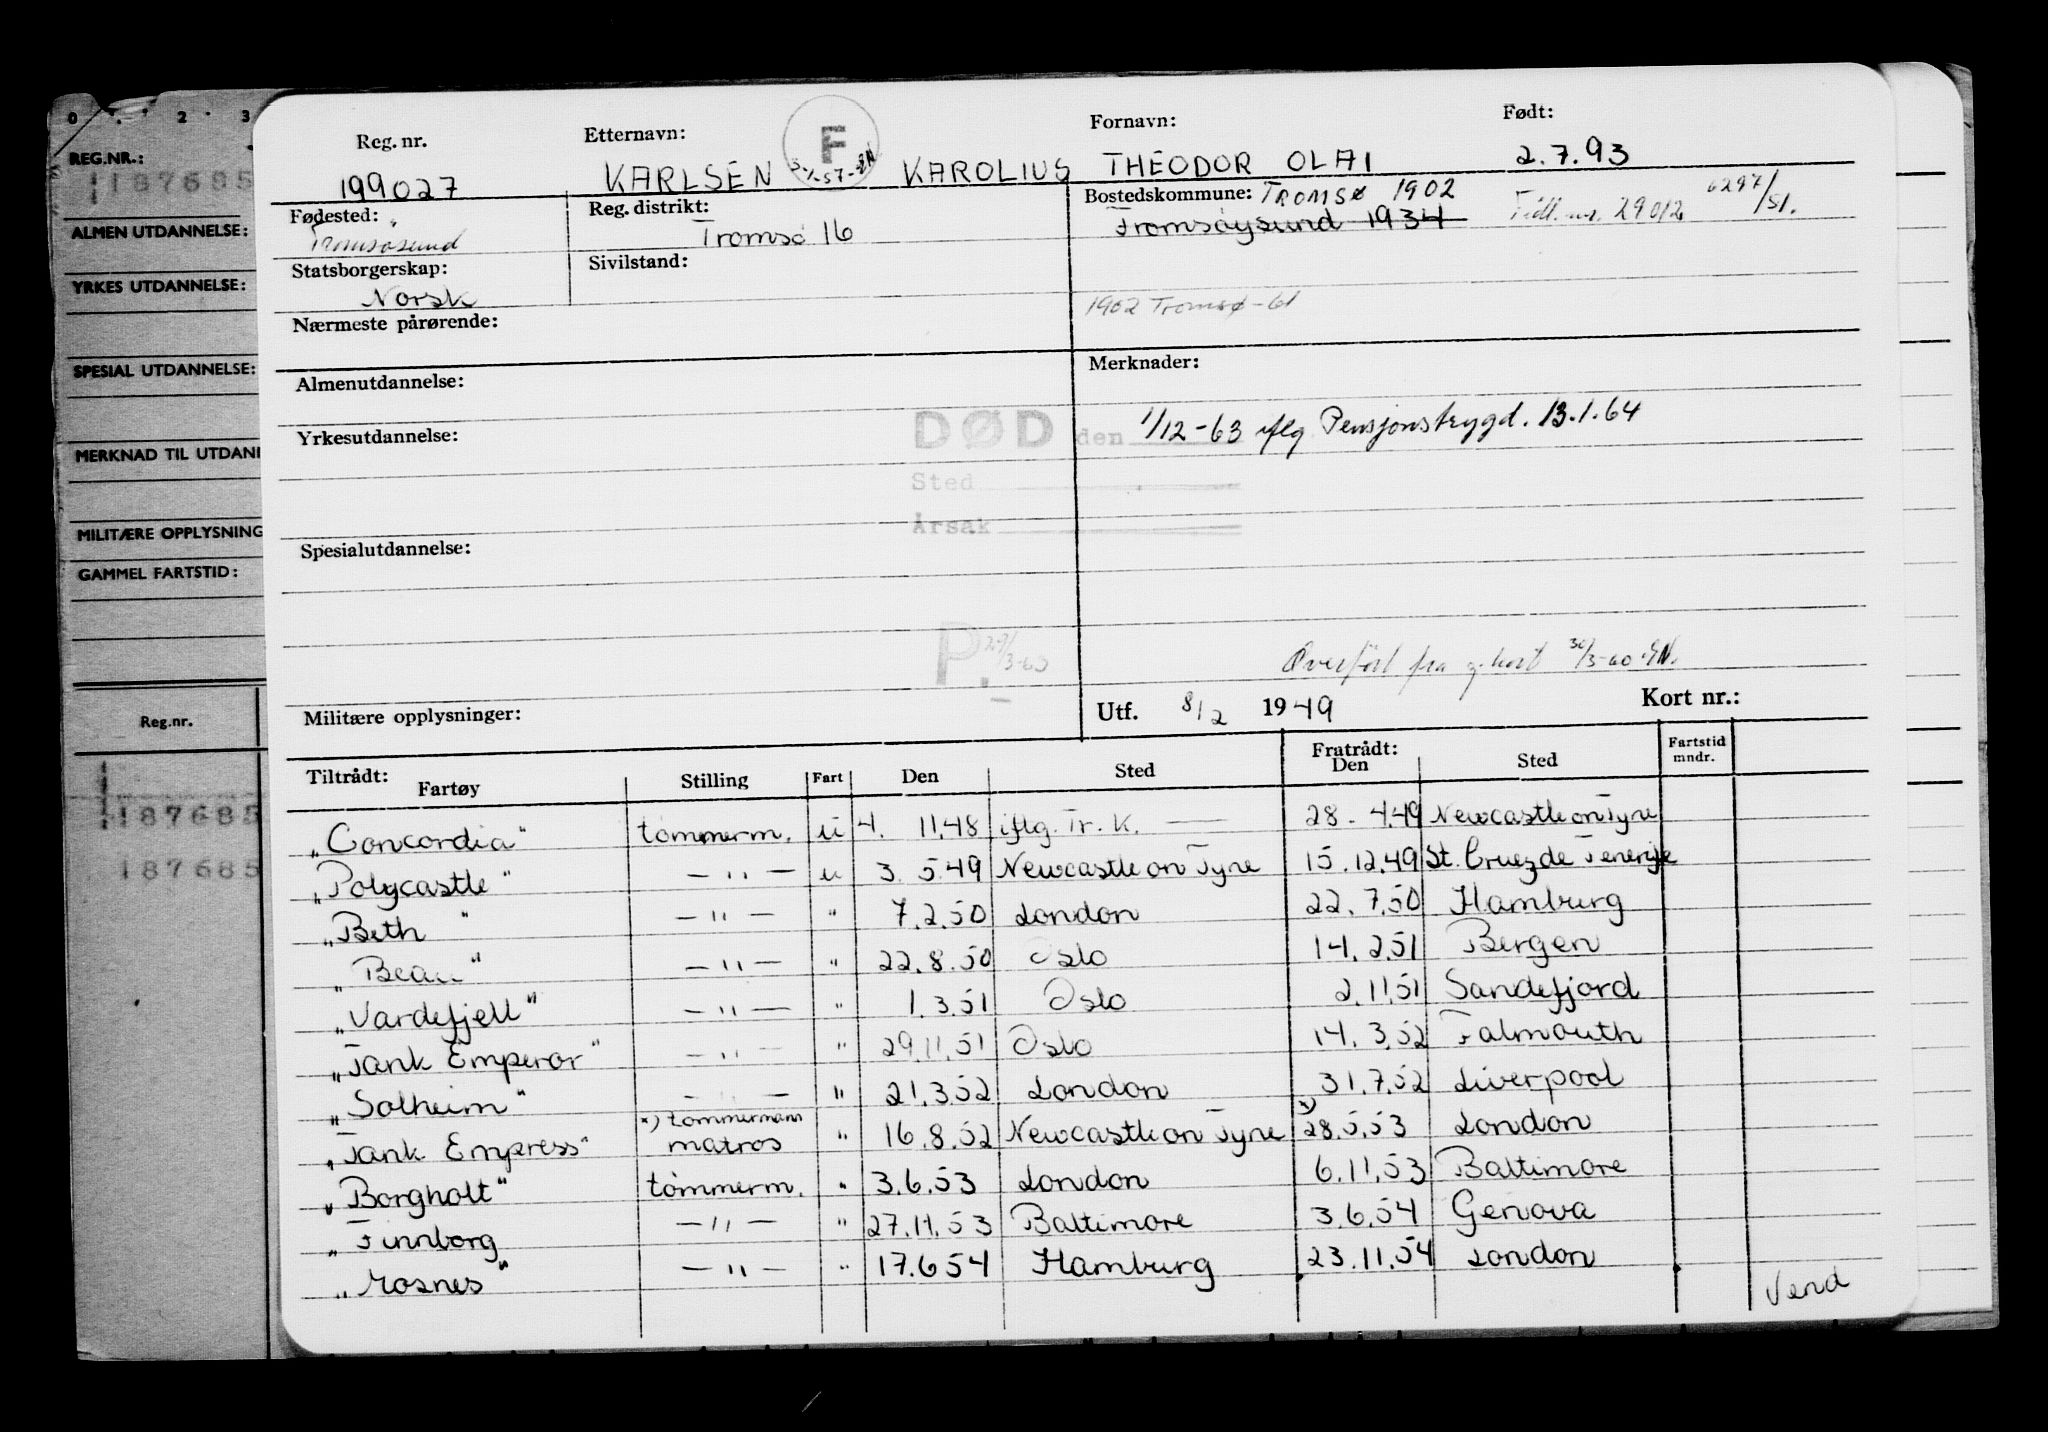 0 . 2 . 3
REG.NR.:
187685
ALMEN UTDANNELSE:
YRKES UTDANNELSE:
SPESIAL UTDANNELSE:
MERKNAD TIL UTDAN
MILITÆRE OPPLYSNING
GAMMEL FARTSTID:
Reg.nr.
187685
187685
Reg. nr. Etternavn: F Fornavn: Født:
199027 KARLSEN KAROLIUS THEODOR OLAI 2.7.93
Fødested: Reg. distrikt: Bostedskommune: TROMSØ 1902
Tromsøsund Tromsø 16 Tromsøysund 1934 Fidl. nr. 29012 6297/51.
Statsborgerskap: Sivilstand:
Norsk 1902 Tromsø-61
Nærmeste pårørende:
Almenutdannelse: Merknader:
Yrkesutdannelse: DØD den 1/12-63 iflg Pensjonstrygd. 13.1.64
Sted
Årsak
Spesialutdannelse:
P. 29/3-60 Overført fra g. kort 30/3-60 EN.
Militære opplysninger: Utf. 8/2 1949 Kort nr.:
Tiltrådt: Fartøy Stilling Fart Den Sted Fratrådt: Den Sted Fartstid mndr.
„Concordia" tømmerm. u 4. 11.48 iflg. Tr. K. — 28. 4.49 Newcastle on Tyne
„Polycastle" — " — u 3. 5.49 Newcastle on Tyne 15.12.49 St. Cruz de Tenerife
„Beth " — " — " 7.2.50 London 22.7.50 Hamburg
„Beau" — " — " 22.8.50 Oslo 14.2.51 Bergen
„Vardefjell" — " — " 1.3.51 Oslo 2.11.51 Sandefjord
„Tank Emperor" — " — " 29.11.51 Oslo 14.3.52 Falmouth
„Solheim" — " — " 21.3.52 London 31.7.52 Liverpool
x) tømmermann x)
„Tank Empress" matros " 16.8.52 Newcastle on Tyne 28.5.53 London
„Borgholt" tømmerm. " 3.6.53 London 6.11.53 Baltimore
„Finnborg — " — " 27.11.53 Baltimore 3.6.54 Genova
„Rosnes" — " — " 17.6 54 Hamburg 23.11.54 London
Vend